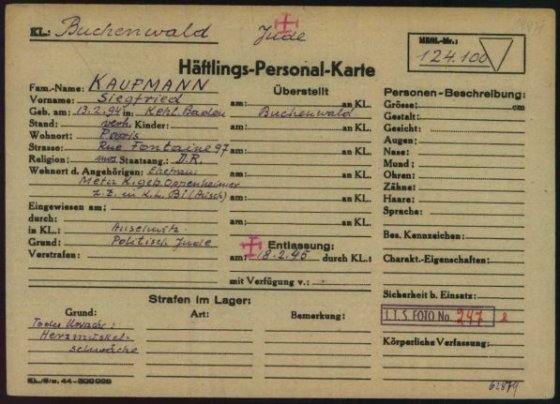 KL: Buchenwald
Jude
Häftl.-Nr.:
124.100
Häftlings-Personal-Karte
Fam.-Name: KAUFMANN
Vorname: Siegfried
Geb. am: 13.2.94 in Kehl Baden
Stand: verh. Kinder:
Wohnort: Paris
Strasse: Rue Fontaine 97
Religion: mos Staatsang.: D.R.
Wohnort d. Angehörigen: Ehefrau
Meta K. geb. Oppenheimer
z.Z. in K.L. Bi (Ausch)
Eingewiesen am:
durch:
in KL.: Auschwitz
Grund: Politisch Jude
Vorstrafen:
Überstellt
am: an KL.
Buchenwald
am: an KL.
am: an KL.
am: an KL.
am: an KL.
am: an KL.
Entlassung:
am: 18.2.45 durch KL.:
mit Verfügung v.:
Personen-Beschreibung:
Grösse: cm
Gestalt:
Gesicht:
Augen:
Nase:
Mund:
Ohren:
Zähne:
Haare:
Sprache:
Bes. Kennzeichen:
Charakt.-Eigenschaften:
Sicherheit b. Einsatz:
I.T.S. FOTO No. 247
Körperliche Verfassung:
Strafen im Lager:
Grund: Art: Bemerkung:
Todes Ursache:
Herzmuskel-
schwäche